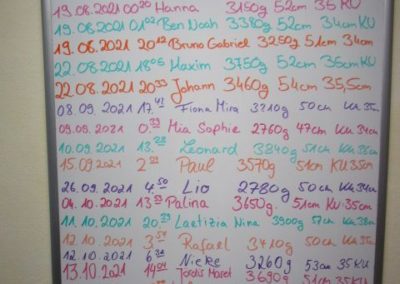 19.08.2021 00:20 Hanna 3150g 52cm 35 KU
19.08.2021 01:02 Ben Noah 3380g 52cm 34cm KU
19.08.2021 20:12 Bruno Gabriel 3250g 51cm 34cm
22.08.2021 18:05 Maxim 3750g 52cm 35cm KU
22.08.2021 20:33 Johann 3460g 54cm 35,5cm
08.09.2021 17.41 Fiona Mira 3210g 50cm KU 35cm
09.09.2021 0.39 Mia Sophie 2760g 47cm KU 34cm
10.09.2021 13.28 Leonard 3840g 51cm KU 35cm
15.09.2021 Paul 3570g 51cm KU 35cm
26.09.2021 4.50 Lio 2780g 50cm KU 34cm
04.10.2021 13.15 Palina 3650g. 51cm KU 35cm
11.10.2021 Laetizia Nina 3900g 57cm KU 38cm
12.10.2021 Rafael 3410g 50cm KU
12.10.2021 Nieke 3260g 53cm 35KU
13.10.2021 Jordis
3690g